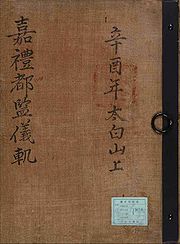 辛酉年太白山上
嘉禮都監儀軌